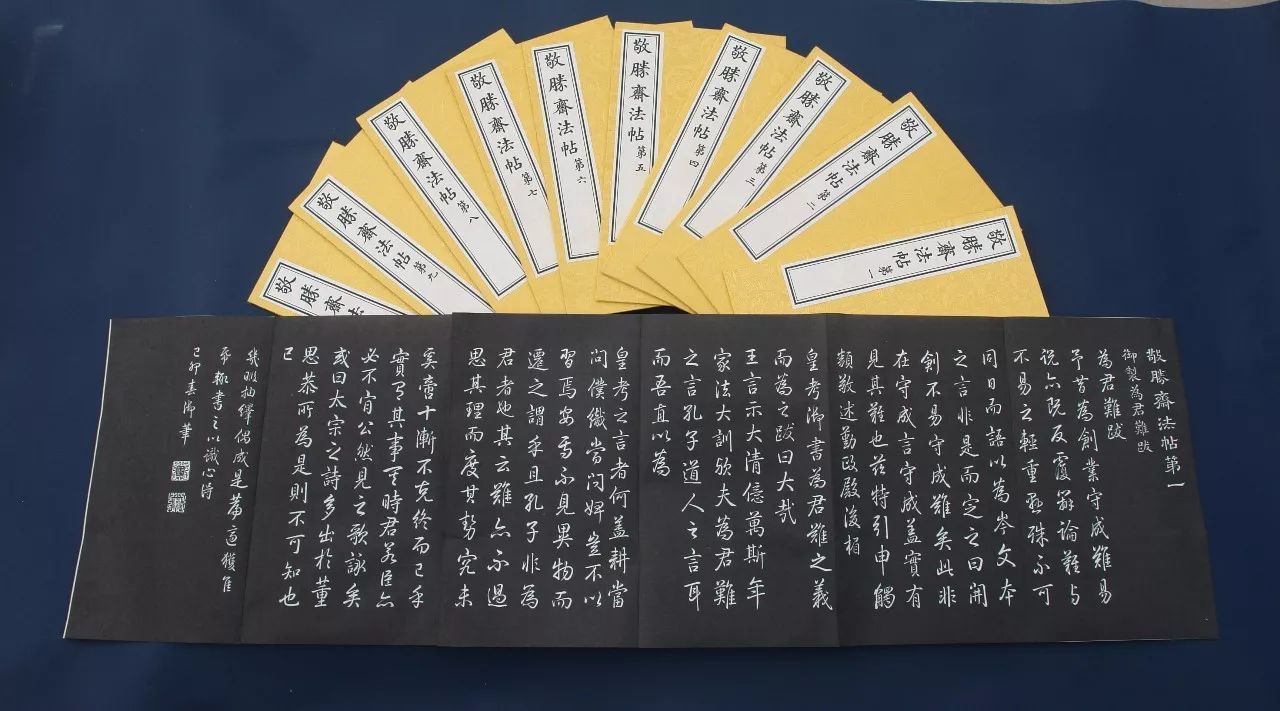 敬勝齋法帖第一
敬勝齋法帖第二
敬勝齋法帖第三
敬勝齋法帖第四
敬勝齋法帖第五
敬勝齋法帖第六
敬勝齋法帖第七
敬勝齋法帖第八
敬勝齋法帖第九
敬勝齋法
敬勝齋法帖第一
御製為君難跋
為君難跋
予嘗為創業守成難易
說亦既反覆辭論難與
不易之輕重懸殊不可
同日而語以為岑文本
之言非是而定之曰開
創不易守成難矣此非
在守成言守成蓋實有
見其難也茲特引申觸
類敬述勤政殿後楣
皇考御書為君難之義
而為之跋曰大哉
王言示大清億萬斯年
家法大訓欤夫為君難
之言孔子道人之言耳
而吾直以為
皇考之言者何蓋耕當
問僕織當問婢豈不以
習焉安焉不見異物而
遷之謂乎且孔子非為
君者也其云難亦不過
思其理而度其勢究未
奚啻十漸不克終而已乎
實有其事其時君若臣亦
必不肯公然見之歌詠矣
或曰太宗之詩多出於董
思恭所為是則不可知也
已
幾暇抽繹偶成是篇適獲佳
輒書之以識心得
己卯春御筆